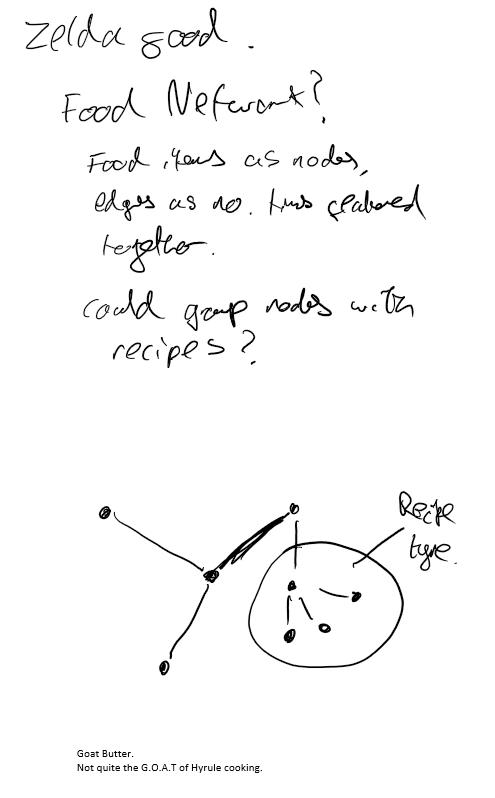 Zelda food.
Food Network?
Food items as nodes,
edges as no. times featured
together.
Could group nodes with
recipes?
Recipe
type.
Goat Butter.
Not quite the G.O.A.T of Hyrule cooking.